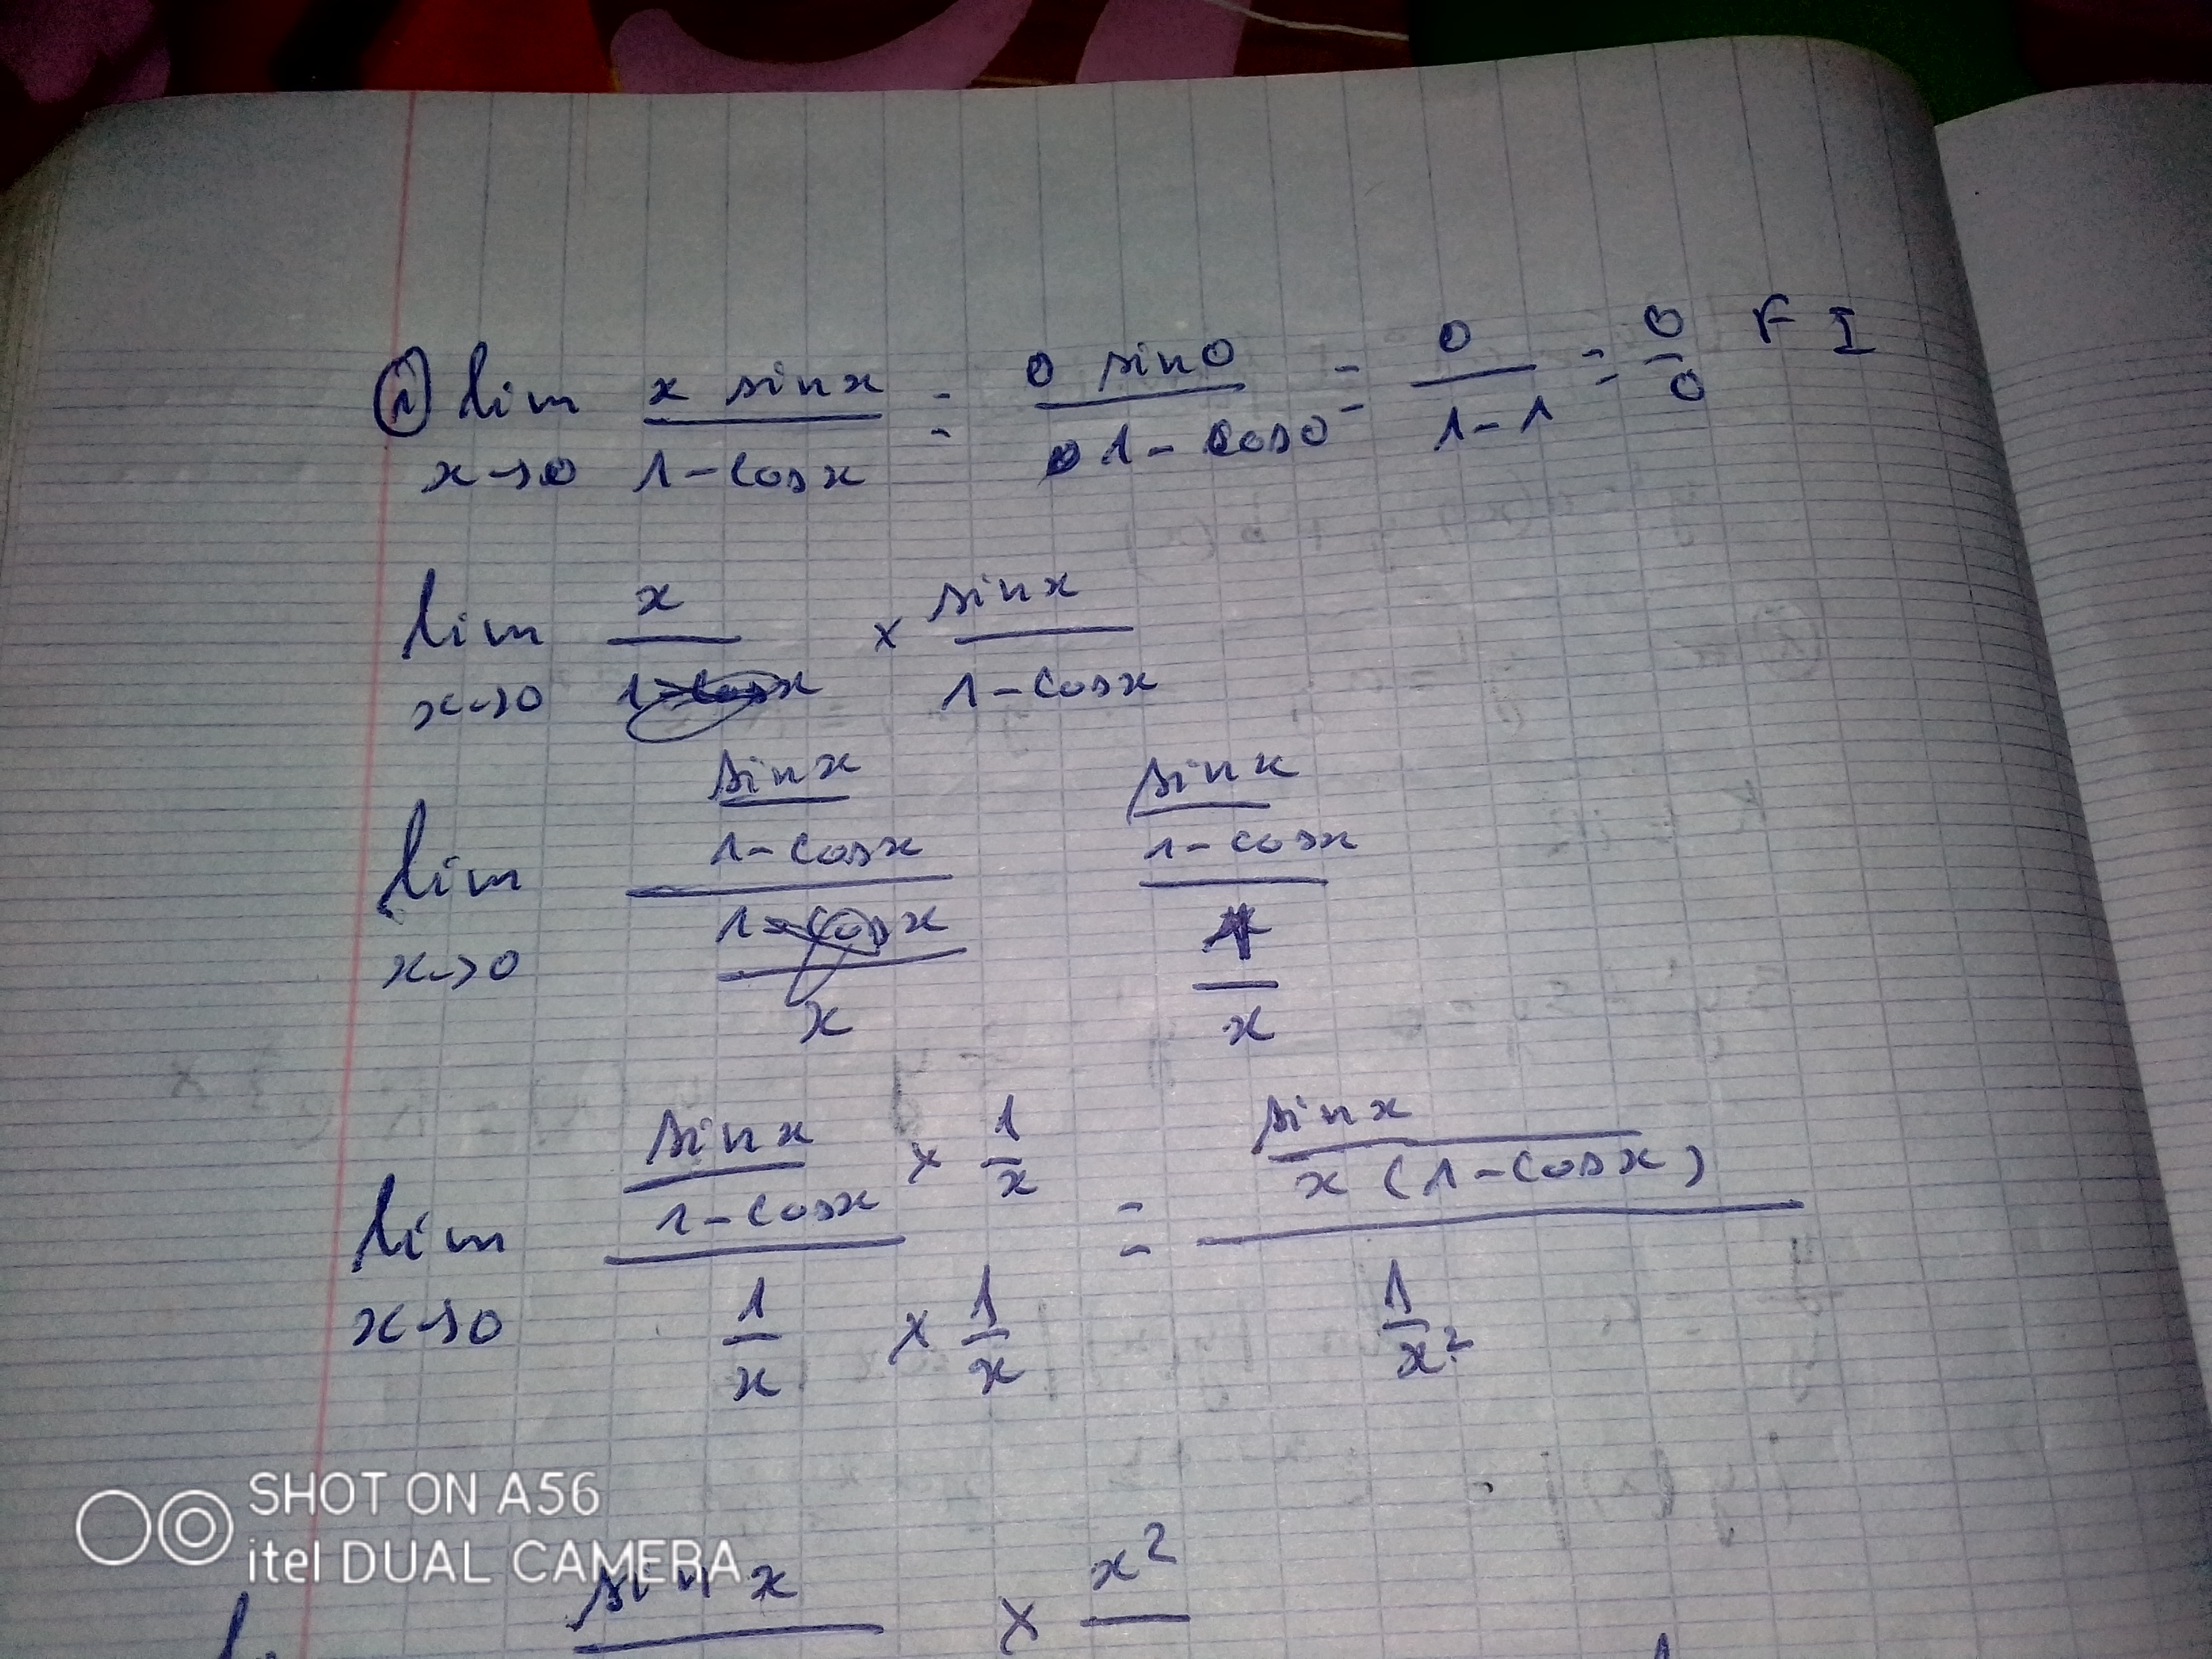 ① lim x→0 x sinx / 1-cosx = 0 sin0 / 1-cos0 = 0 / 1-1 = 0/0 F I
lim x→0 x / 1-cosx × sinx / 1-cosx
lim x→0 sinx / 1-cosx / 1-cosx / x sinx / 1-cosx / 1 / x
lim x→0 sinx / 1-cosx × 1/x / 1/x × 1/x = sinx / x(1-cosx) / 1/x²
SHOT ON A56
itel DUAL CAMERA
sinx × x²